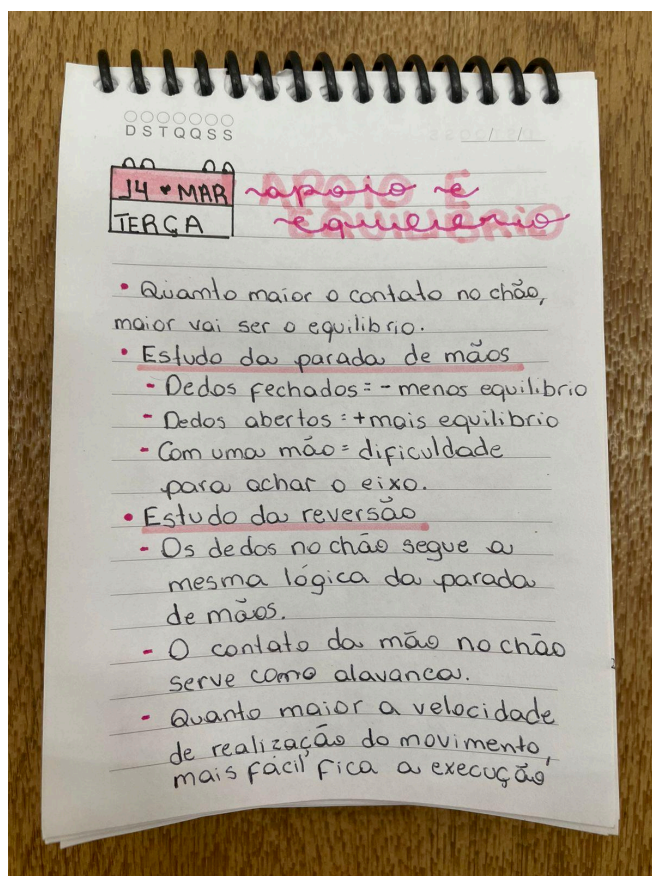 D S T Q Q S S
14 ♥ MAR
TERÇA
apoio e
equilibrio
• Quanto maior o contato no chão,
maior vai ser o equilibrio.
• Estudo da parada de mãos
- Dedos fechados = - menos equilibrio
- Dedos abertos = + mais equilibrio
- Com uma mão = dificuldade
para achar o eixo.
• Estudo da reversão
- Os dedos no chão segue a
mesma lógica da parada
de mãos.
- O contato da mão no chão
serve como alavanca.
- Quanto maior a velocidade
de realização do movimento,
mais fácil fica a execução